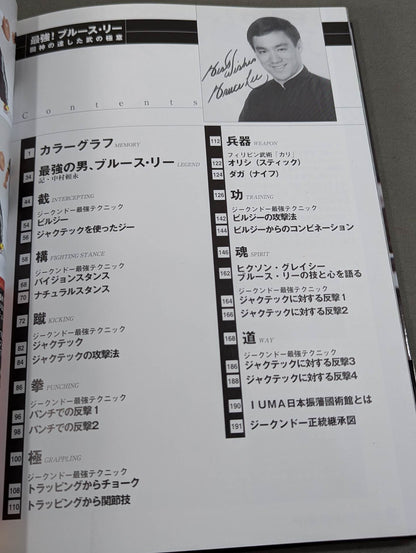 最強!ブルース・リー
闘神の達した武の極意
Contents
Best Wishes
Bruce Lee
1 カラーグラフ MEMORY
34 最強の男、ブルース・リー LEGEND
記・中村頼永
44 截 INTERCEPTING
ジークンドー最強テクニック
54 ビルジー
56 ジャクテックを使ったジー
58 構 FIGHTING STANCE
ジークンドー最強テクニック
68 バイジョンスタンス
70 ナチュラルスタンス
72 蹴 KICKING
ジークンドー最強テクニック
82 ジャクテック
84 ジャクテックの攻撃法
86 拳 PUNCHING
ジークンドー最強テクニック
96 パンチでの反撃1
98 パンチでの反撃2
100 極 GRAPPLING
ジークンドー最強テクニック
108 トラッピングからチョーク
110 トラッピングから関節技
112 兵器 WEAPON
フィリピン武術「カリ」
122 オリシ（スティック）
124 ダガ（ナイフ）
126 功 TRAINING
ジークンドー最強テクニック
142 ビルジーの攻撃法
144 ビルジーからのコンビネーション
146 魂 SPIRIT
162 ヒクソン・グレイシー
ブルース・リーの技と心を語る
ジークンドー最強テクニック
164 ジャクテックに対する反撃1
166 ジャクテックに対する反撃2
168 道 WAY
ジークンドー最強テクニック
186 ジャクテックに対する反撃3
188 ジャクテックに対する反撃4
190 IUMA日本振藩國術館とは
191 ジークンドー正統継承図